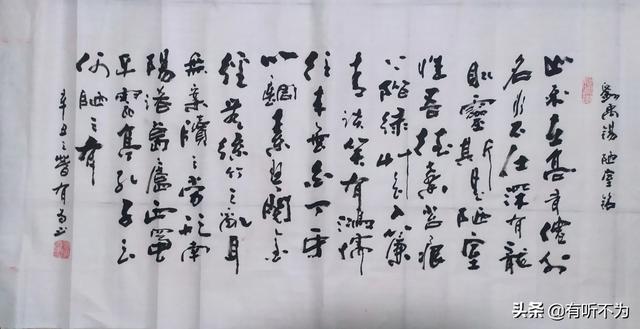 劉禹锡陋室铭
山不在高有僊则
名水不在深有龍
则靈斯是陋室
惟吾德馨苔痕
上阶绿草色入簾
青谈笑有鴻儒
往来无白丁可
以調素琴閱金
經無絲竹之亂耳
無案牍之劳形南
陽诸葛廬西蜀
子雲亭孔子云
何陋之有
辛丑之 有为书
头条 @有听不为